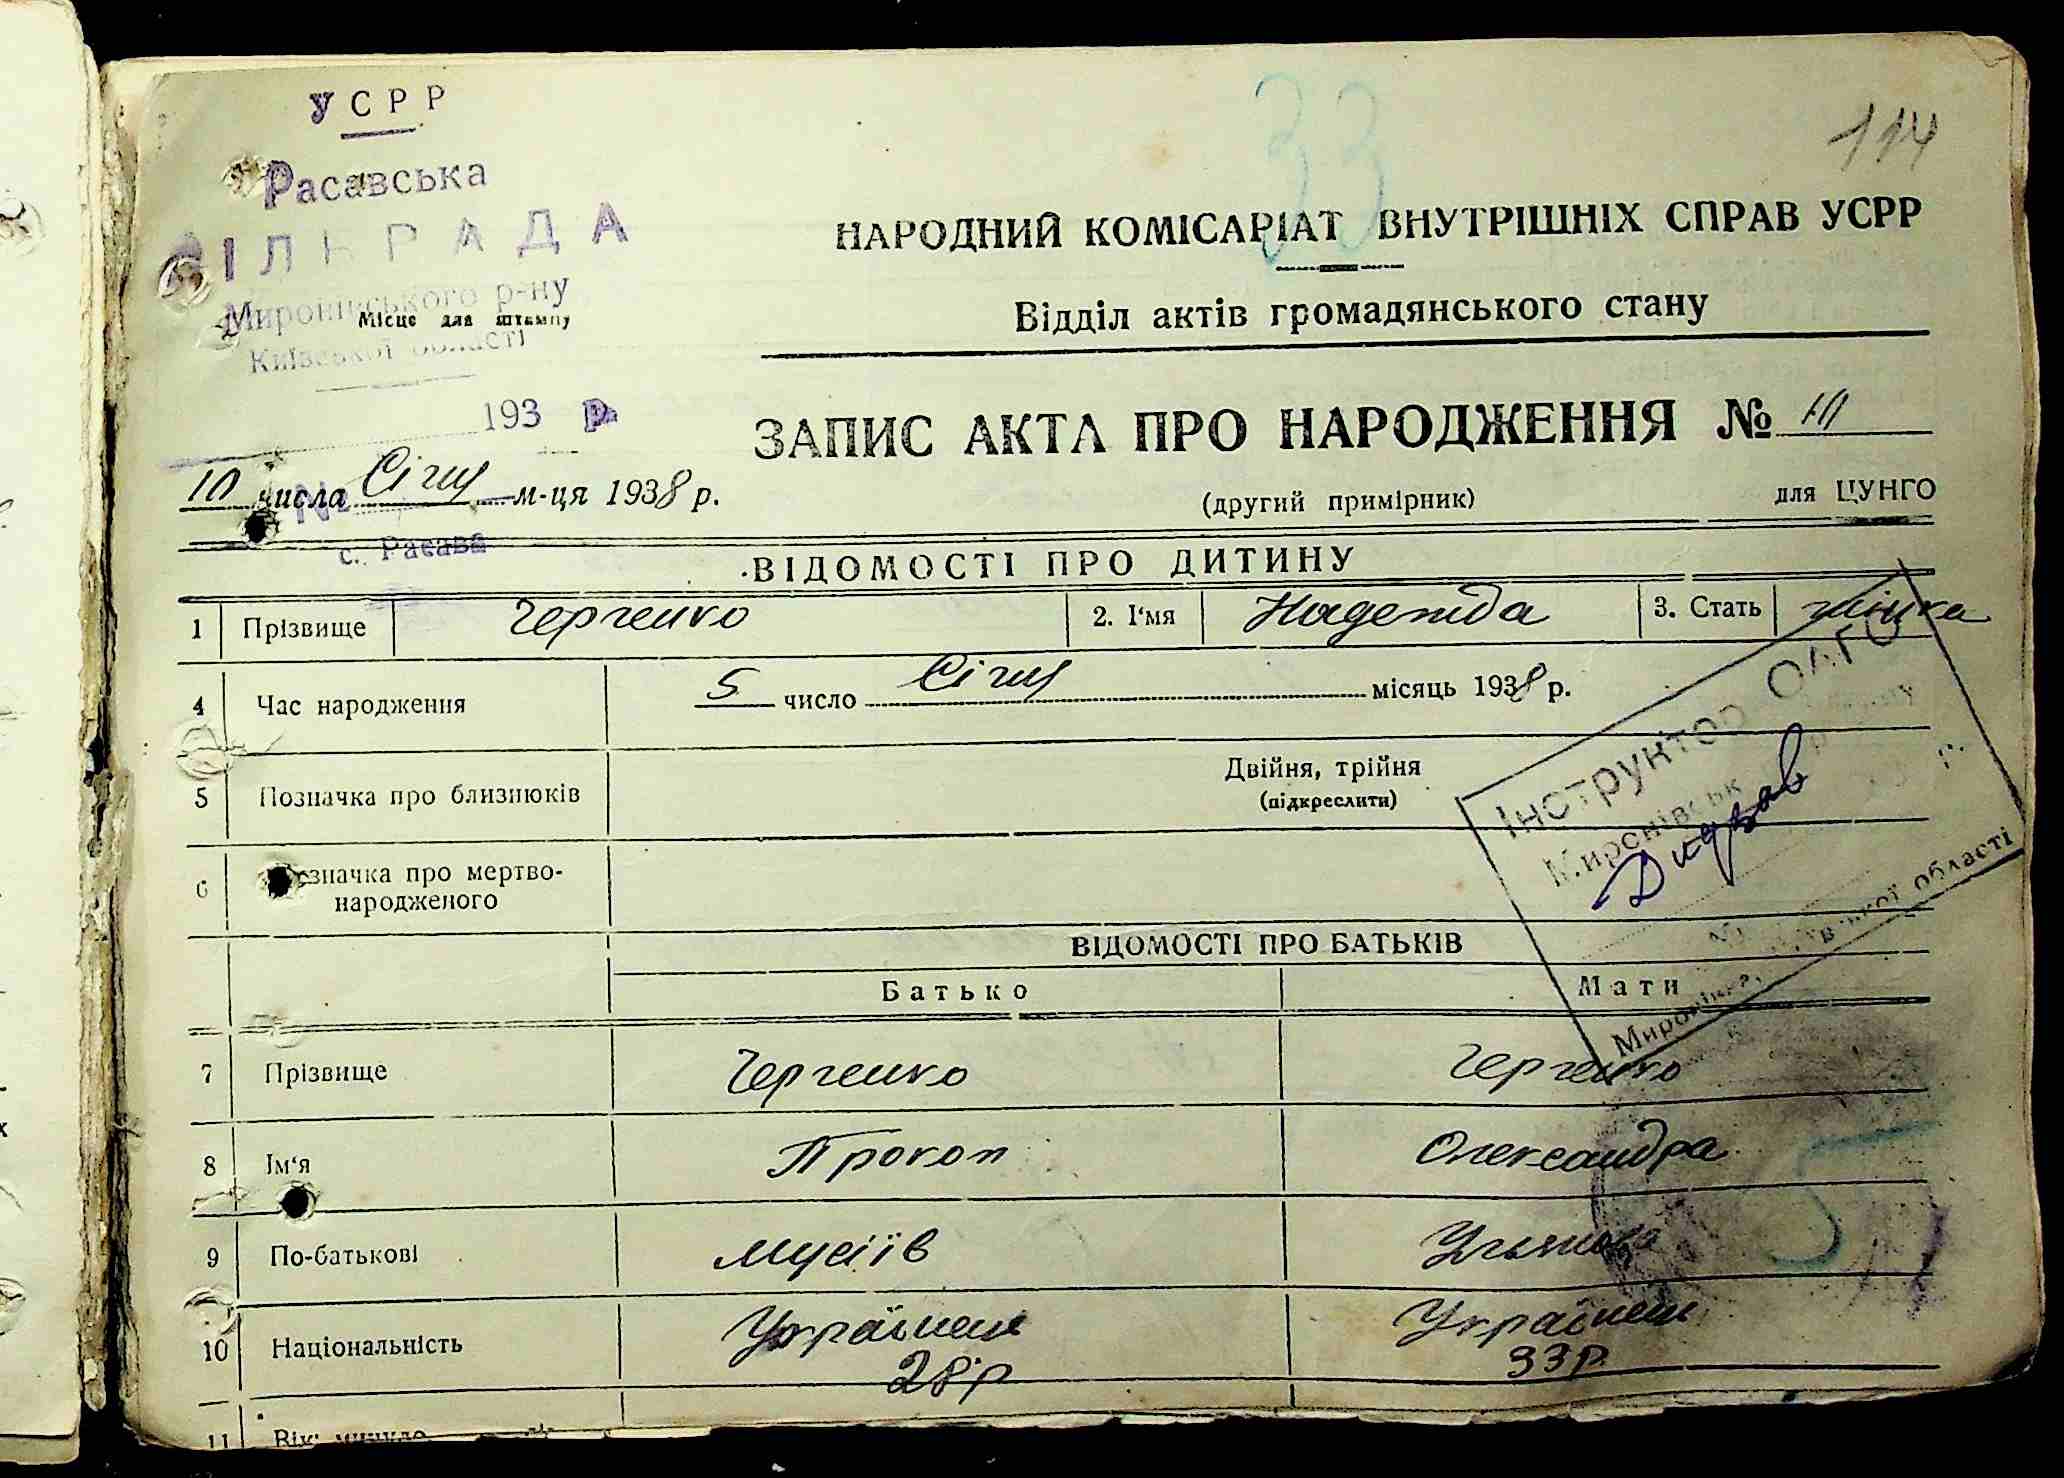 УСРР
33
114
Расавська
СІЛЬРАДА
Миронівського р-ну
Місце для штампу
Київської області
193 р.
№
с. Расава
НАРОДНИЙ КОМІСАРІАТ ВНУТРІШНІХ СПРАВ УСРР
Відділ актів громадянського стану
ЗАПИС АКТА ПРО НАРОДЖЕННЯ № 10
10 числа Січня м-ця 1938 р.
(другий примірник)
для ЦУНГО
ВІДОМОСТІ ПРО ДИТИНУ
1 Прізвище Черченко 2. І'мя Надежда 3. Стать жінка
4 Час народження 5 число Січня місяць 1938 р.
5 Позначка про близнюків Двійня, трійня
(підкреслити)
6 Позначка про мертво-
народженого
Інструктор ОАГС
Миронівськ
Миронівка, Київської області
ВІДОМОСТІ ПРО БАТЬКІВ
Батько Мати
7 Прізвище Черченко Черченко
8 Ім'я Прокоп Олександра
9 По-батькові Мусіїв
10 Національність Українец Українец
28 р 33 р
11 Вік: минуло